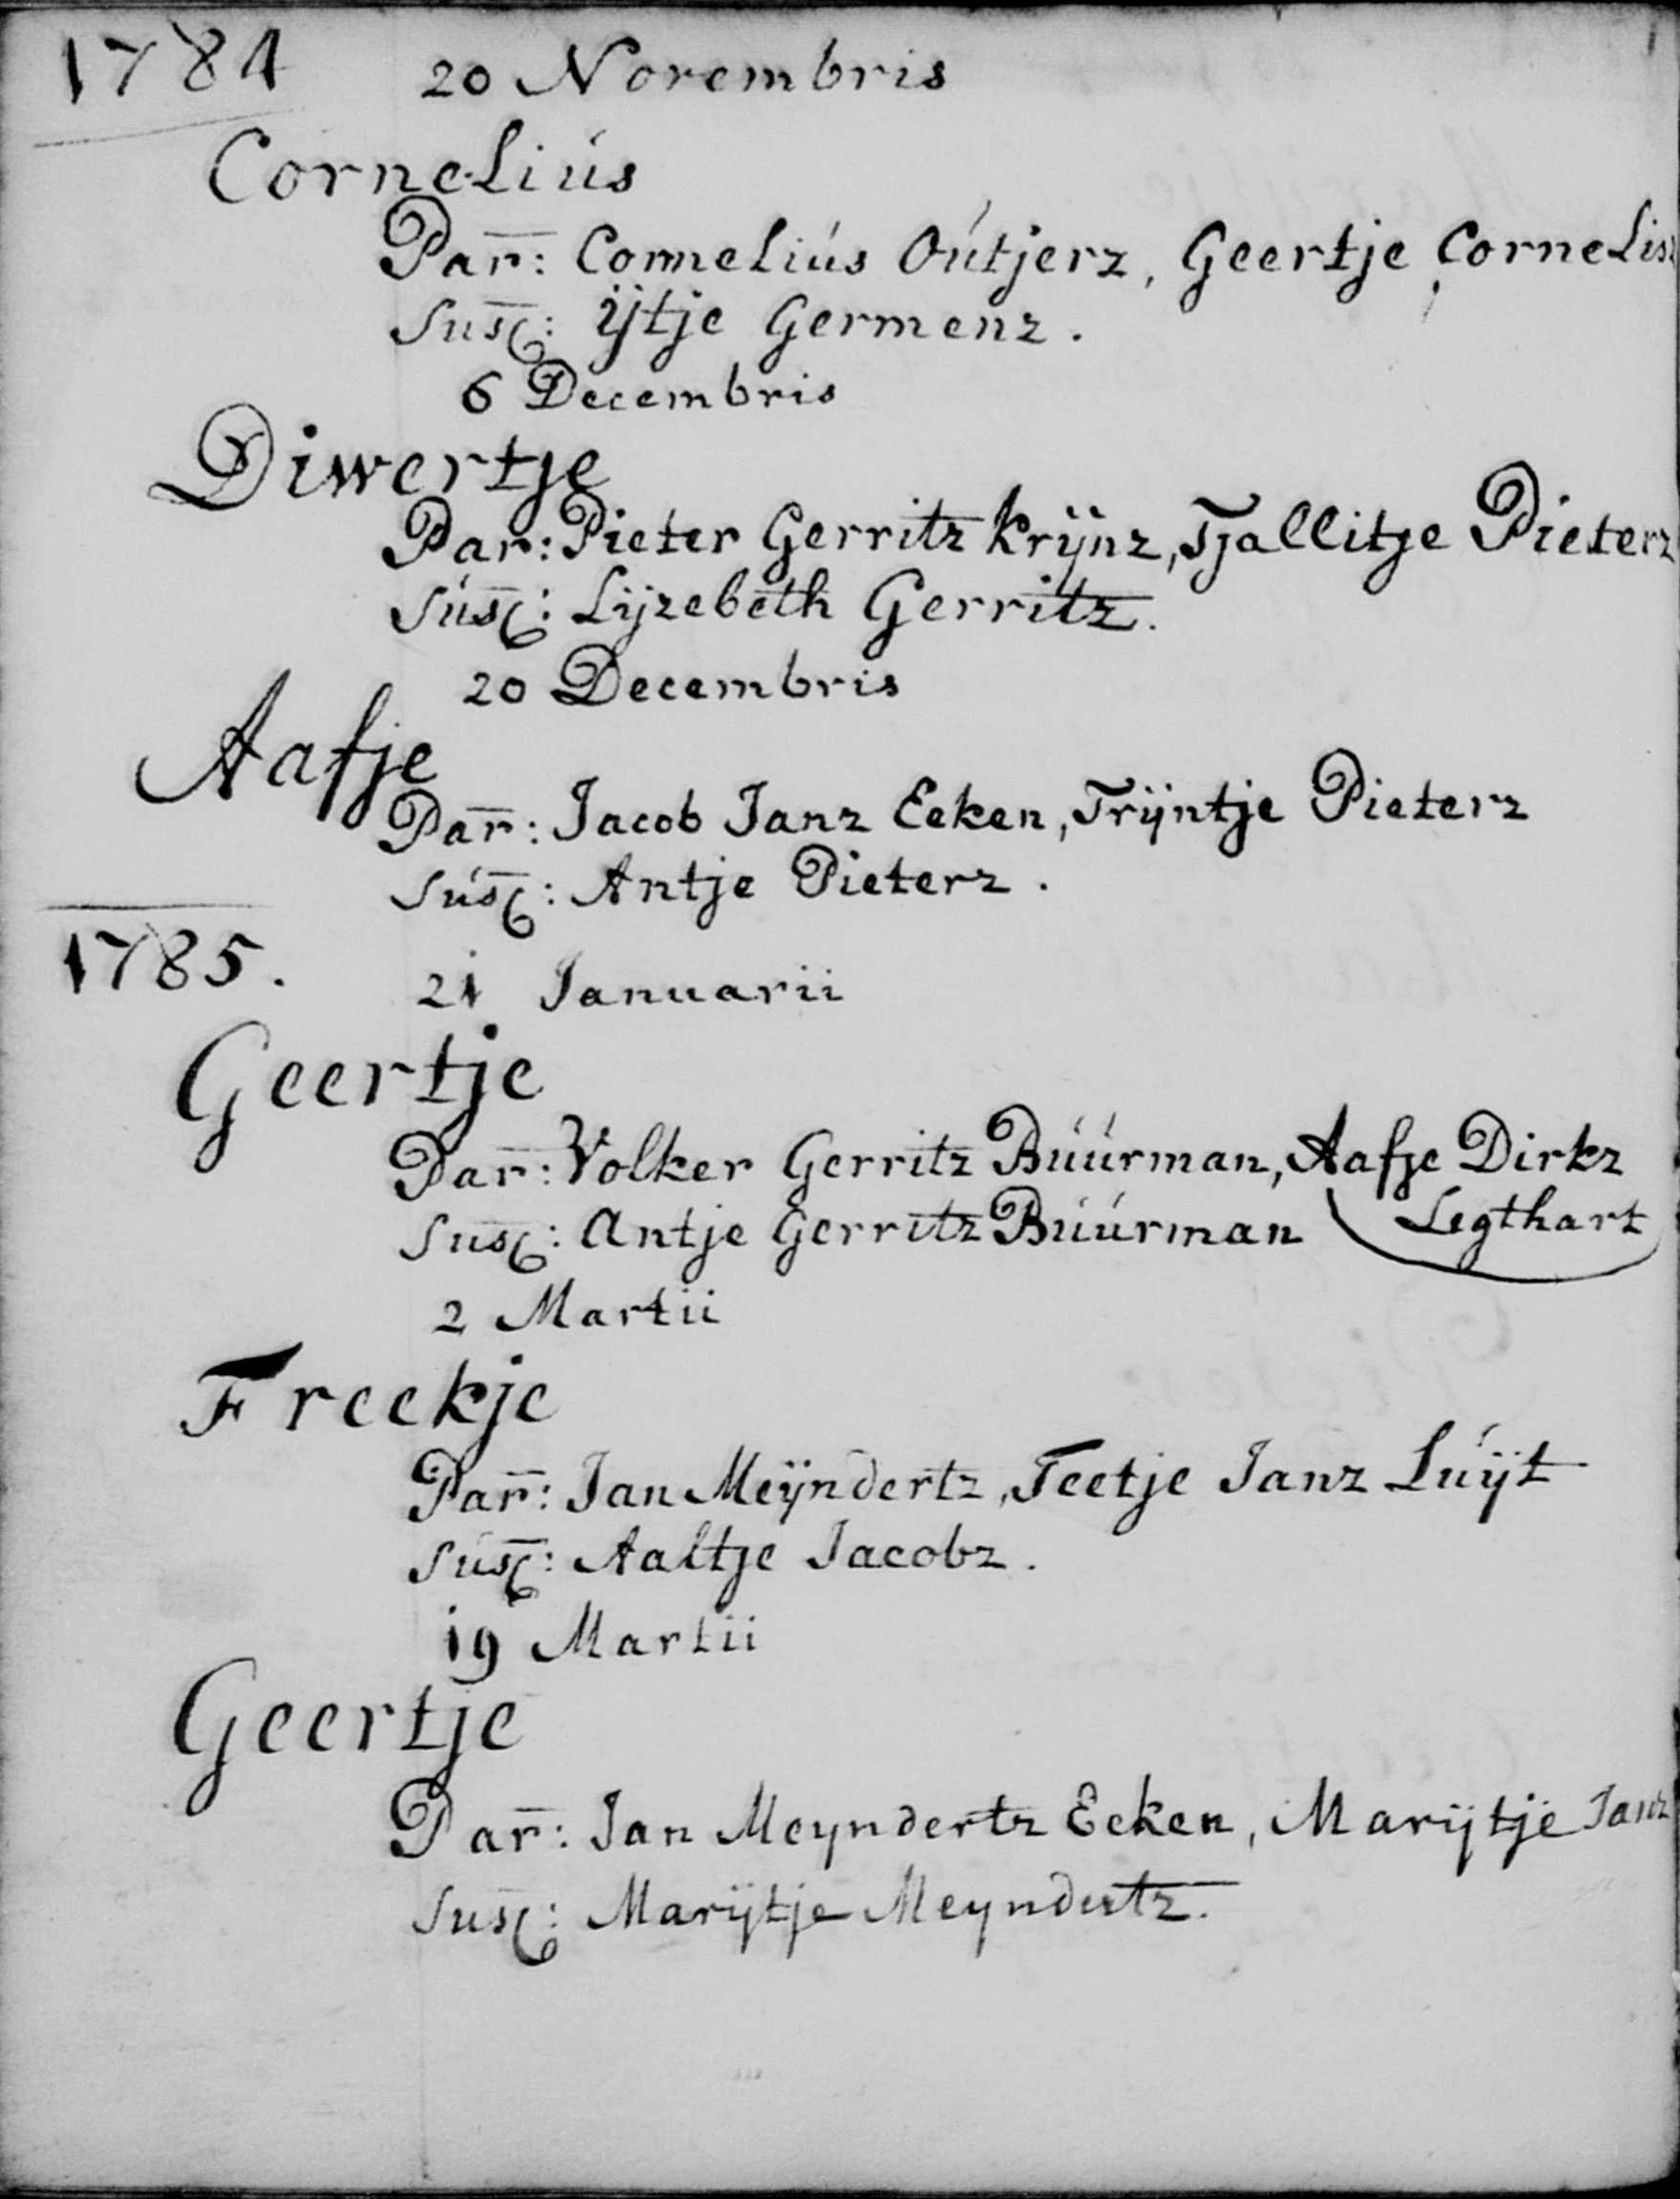 1784 20 Novembris
Cornelius
Par: Cornelius Outjerz, Geertje Cornelisz
Susc: ijtje Germenz.
6 Decembris
Diwertje
Par: Pieter Gerritz Krijnz, Tjallitje Pieterz
Susc: Lijzebeth Gerritz.
20 Decembris
Aafje
Par: Jacob Janz Eeken, Trijntje Pieterz
Susc: Antje Pieterz.
1785. 21 Januarii
Geertje
Par: Volker Gerritz Buurman, Aafje Dirkz
Susc: Antje Gerritz Buurman Legthart
2 Martii
Freekje
Par: Jan Meijndertz, Teetje Janz Luijt
Susc: Aaltje Jacobz.
19 Martii
Geertje
Par: Jan Meyndertz Eeken, Marijtje Janz
Susc: Marijtje Meyndertz.